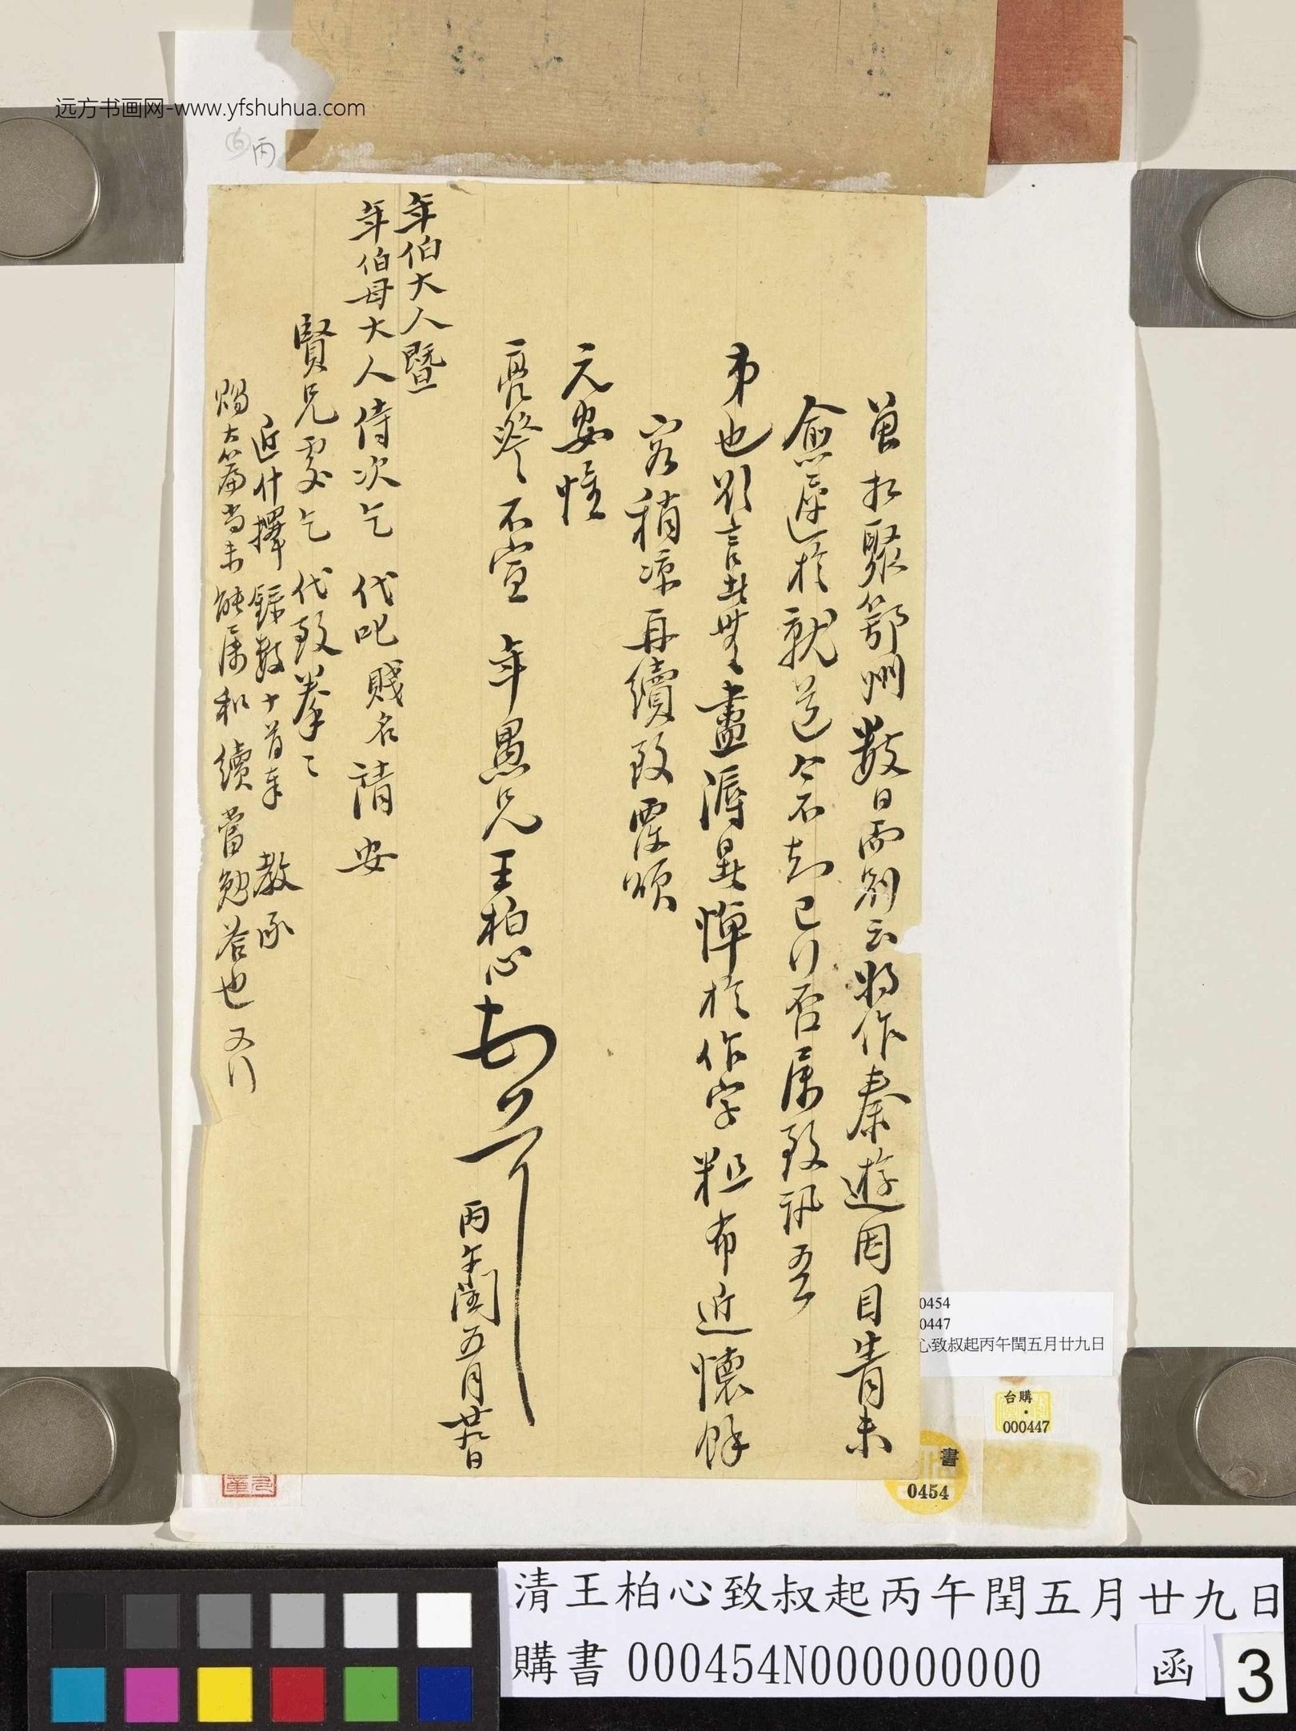 远方书画网-www.yfshuhua.com
丙
曾相聚鄂州数日而别云将作秦遊因目眚未
愈遲於就道今不知已行否属致訊吾
弟也欲言甚無盡溽暑憚於作字粗布近懷餘
容稍凉再續致覆頌
元安惟
亮詧不宣 年愚兄王柏心頓首
丙午閏五月廿九日
年伯大人暨
年伯母大人侍次乞 代叱賤名請安
賢兄處乞 代致拳拳
近什擇錄數十首奉 教承
賜古篇尚未能属和續當勉答也 又行
0454
0447
心致叔起丙午閏五月廿九日
台購
000447
書
0454
清王柏心致叔起丙午閏五月廿九日
購書 000454N000000000 函 3